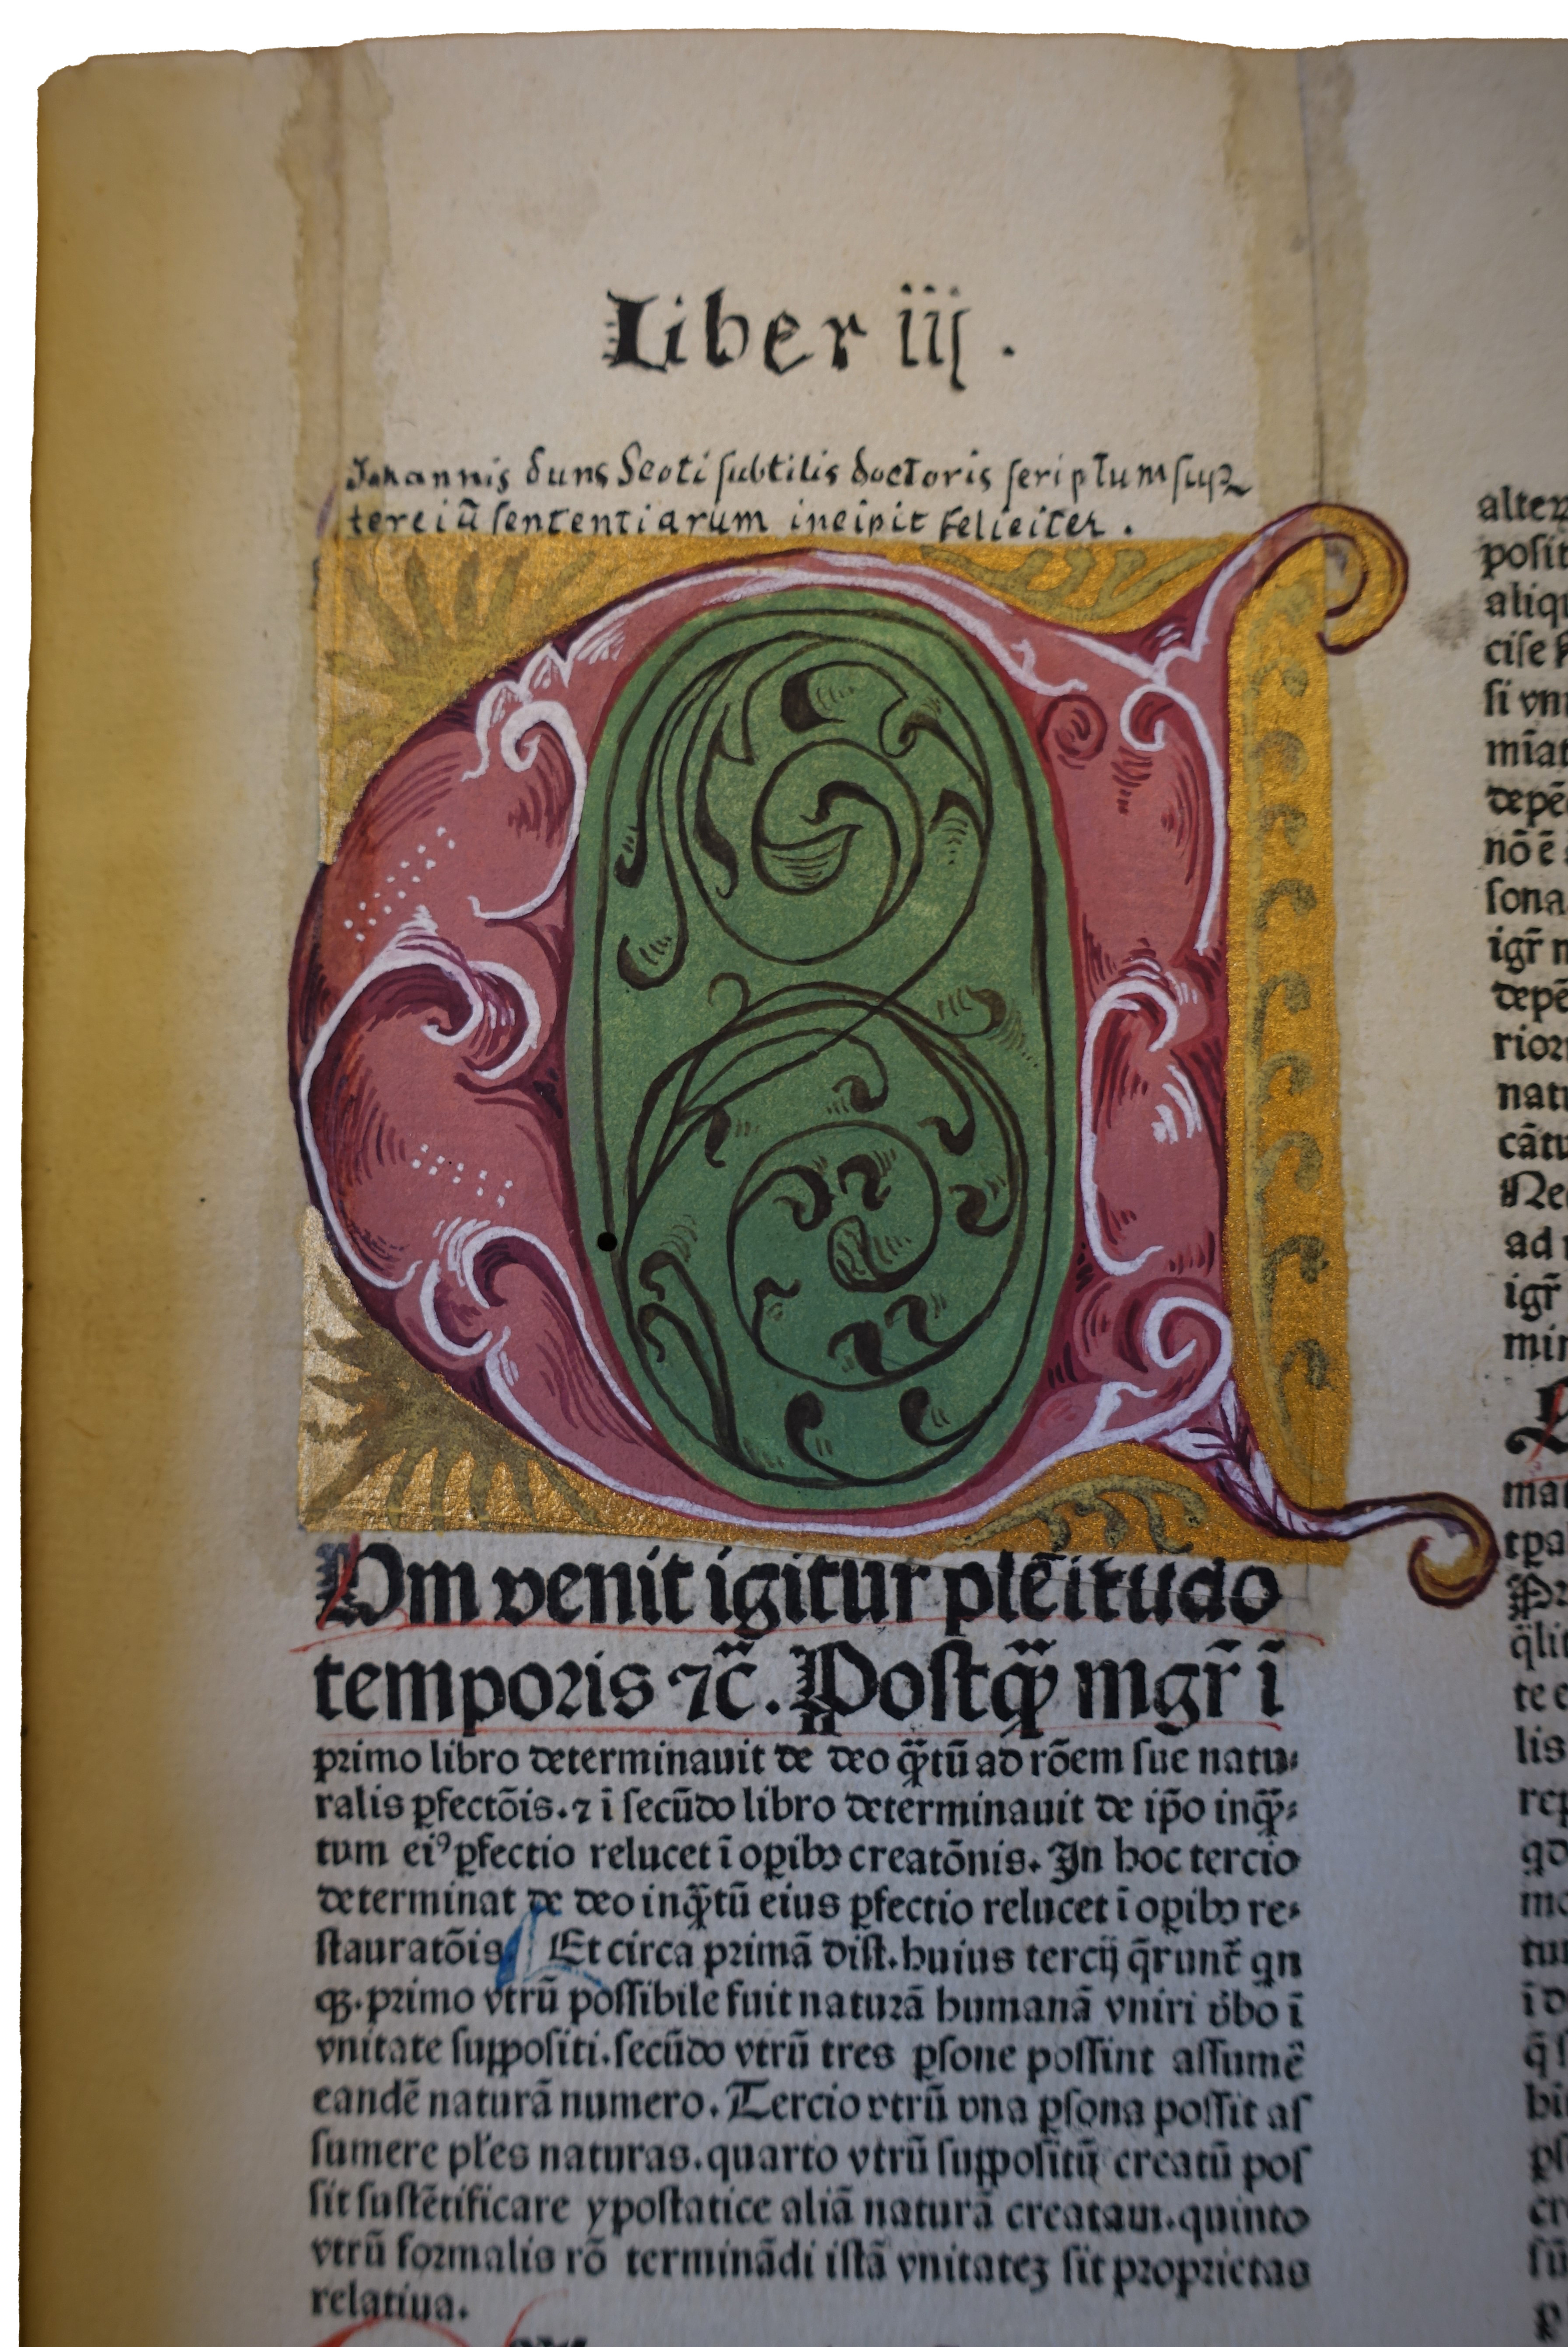 Liber iij .
Johannis duns Scoti subtilis doctoris scriptum sup
terciū sententiarum incipit feliciter .
Um venit igitur plēitudo
temporis ⁊c̄. Postqꝫ mgr̄ ī
primo libro determinauit de deo qͣtū ad rōem sue natu⸗
ralis ꝑfectōis.⁊ ī secūdo libro determinauit de ip̄o inqͣ⸗
tum eiꝰ ꝑfectio relucet ī oꝑibꝫ creatōnis. In hoc tercio
determinat de deo inqͣtū eius ꝑfectio relucet ī oꝑibꝫ re⸗
stauratōis Et circa primā dist.huius tercij q̄runt̄ qn
qꝫ.primo vtrū possibile fuit naturā humanā vniri v̄bo ī
vnitate suppositi.secūdo vtrū tres ꝑsone possint assumē
eandē naturā numero. Tercio vtrū vna ꝑsona possit as
sumere pl̄es naturas.quarto vtrū suppositū creatū pos
sit sustētificare ypostatice aliā naturā creatam.quinto
vtrū formalis rō terminādi istā vnitateꝫ sit proprietas
relatiua.
posit
cise
si vni
nō ē
sona
igr̄
natu
Ne
ad
igr̄
min
te
lis